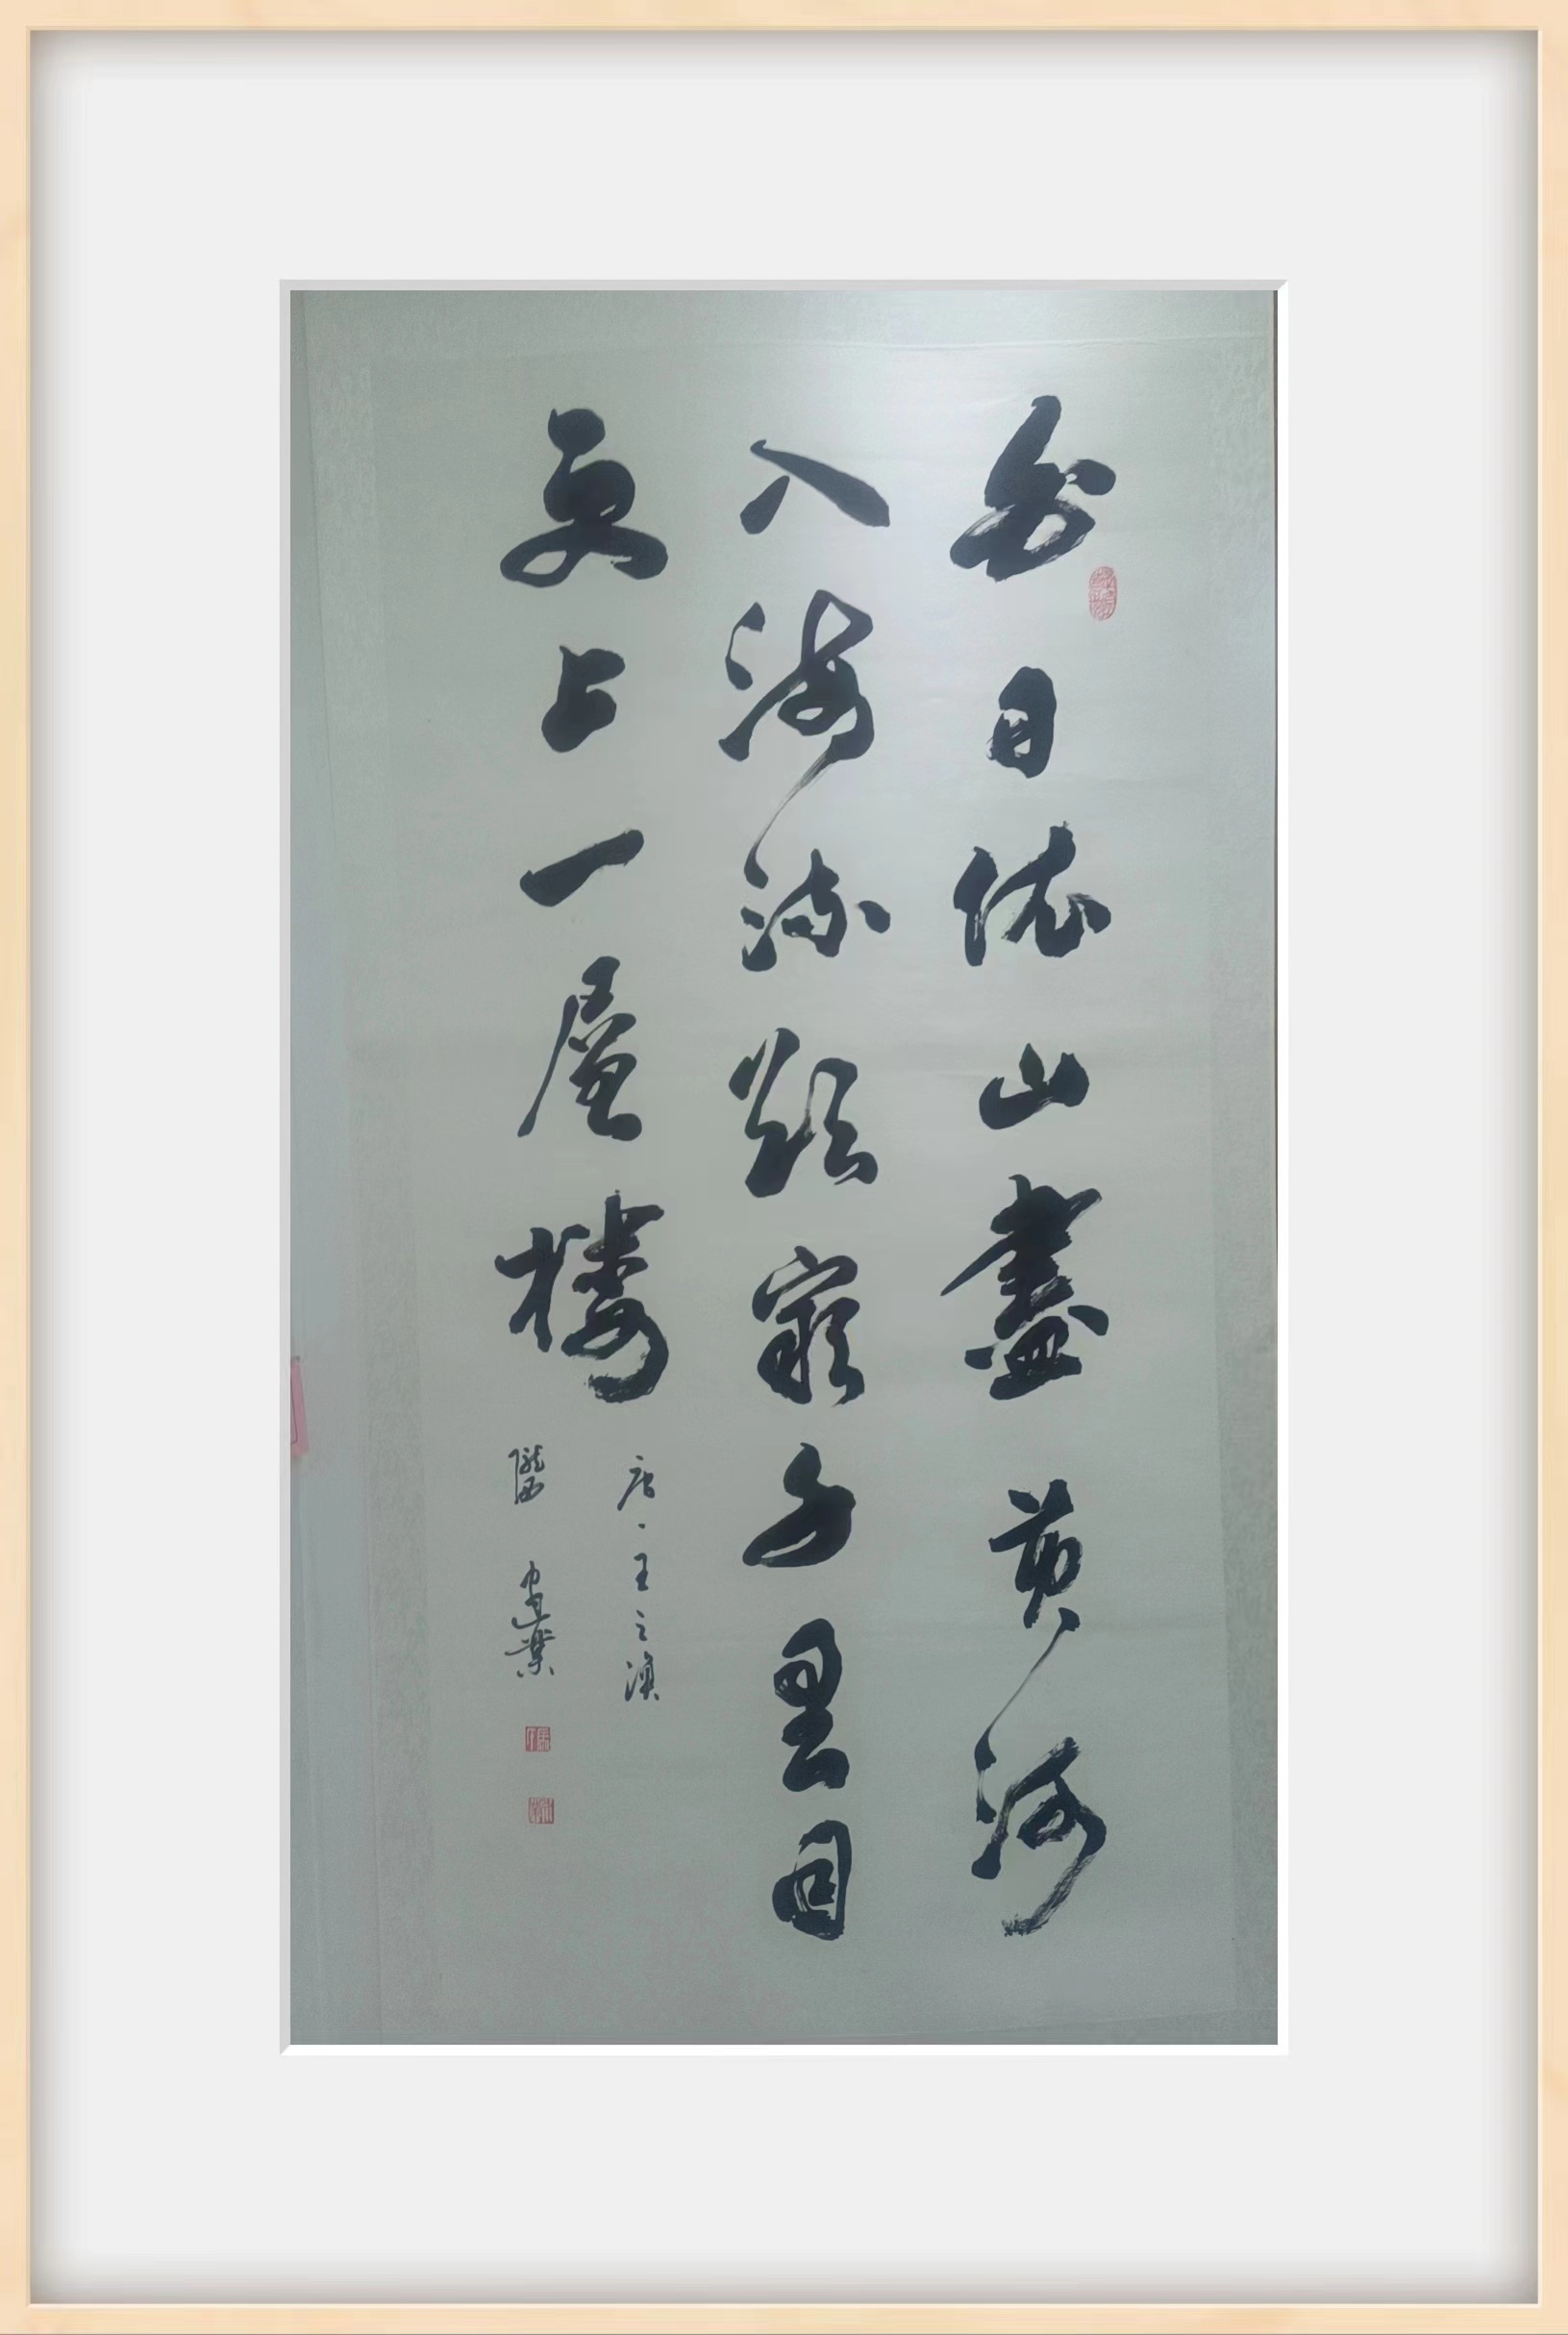 白日依山盡黄河
入海流欲窮千里目
更上一層樓
唐·王之渙
隴西 建業